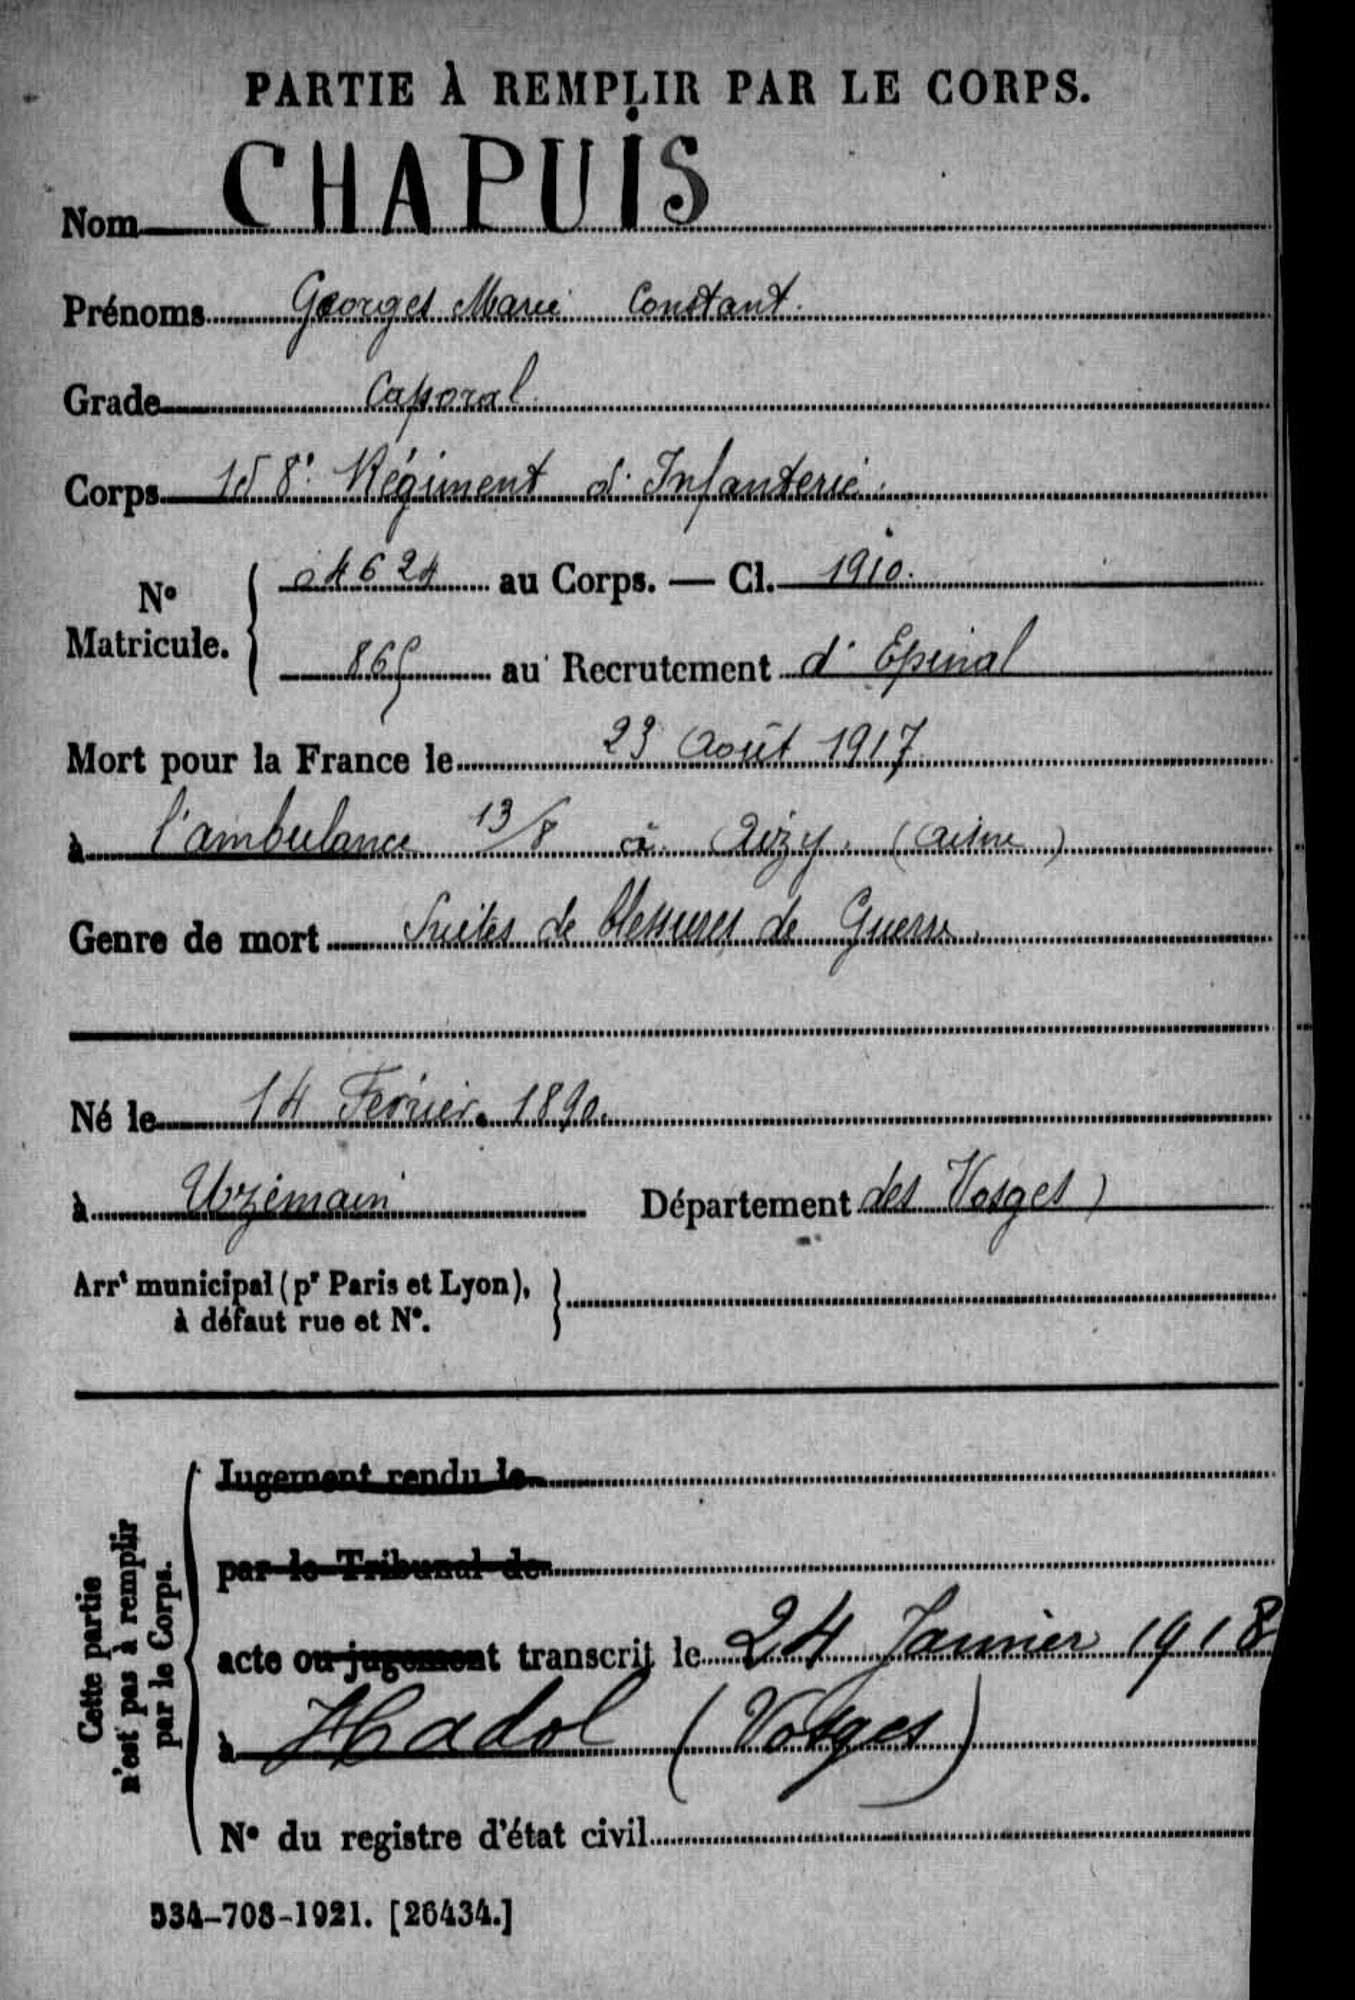 PARTIE À REMPLIR PAR LE CORPS.
Nom CHAPUIS
Prénoms Georges Marie Constant.
Grade Caporal
Corps 158e Régiment d'Infanterie.
No Matricule. { 04624 au Corps. — Cl. 1910.
865 au Recrutement d'Epinal
Mort pour la France le 23 Août 1917
à l'ambulance 13/8 à Aizy (Aisne)
Genre de mort Suites de blessures de Guerre.
Né le 14 Février 1890.
à Uzemain Département des Vosges)
Arrt municipal (pr Paris et Lyon),
à défaut rue et No.
Cette partie
n'est pas à remplir
par le Corps.
Jugement rendu le
par le Tribunal de
acte ou jugement transcrit le 24 Janvier 1918
à Hadol (Vosges)
No du registre d'état civil
534-708-1921. [26434.]